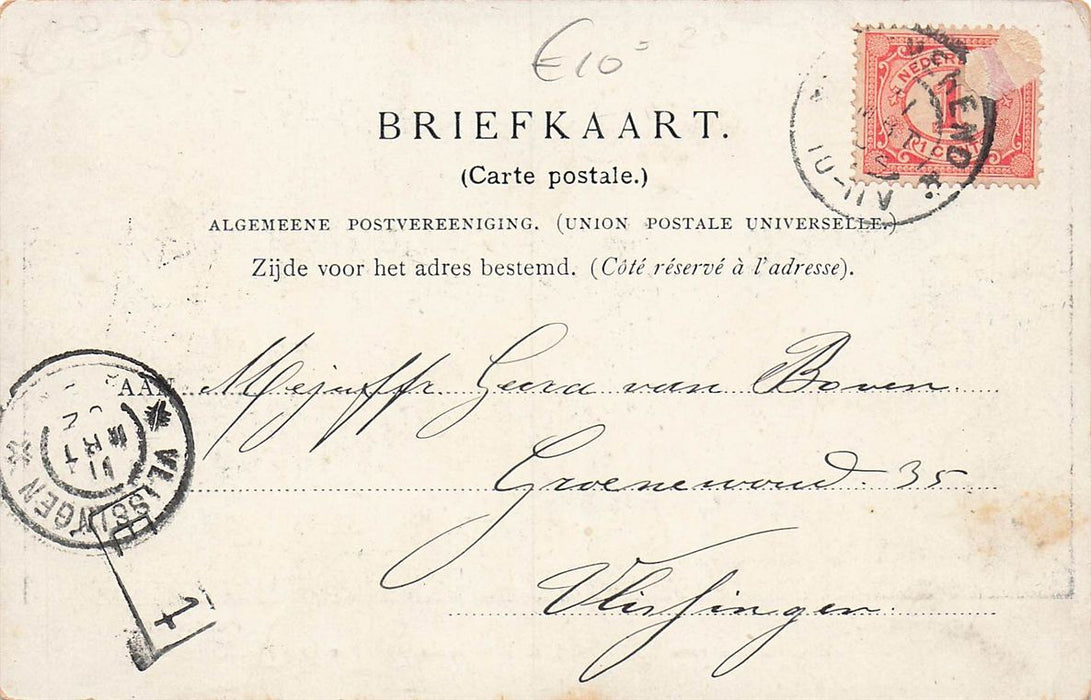 €10=
BRIEFKAART.
(Carte postale.)
ALGEMEENE POSTVEREENIGING. (UNION POSTALE UNIVERSELLE.)
Zijde voor het adres bestemd. (Côté réservé à l'adresse).
AAN Mejuffr. Geera van Boven
Groenewoud. 35
Vlissingen.
NEDER
1
1 CENT
10-11V
VLISSINGEN
MRT
1